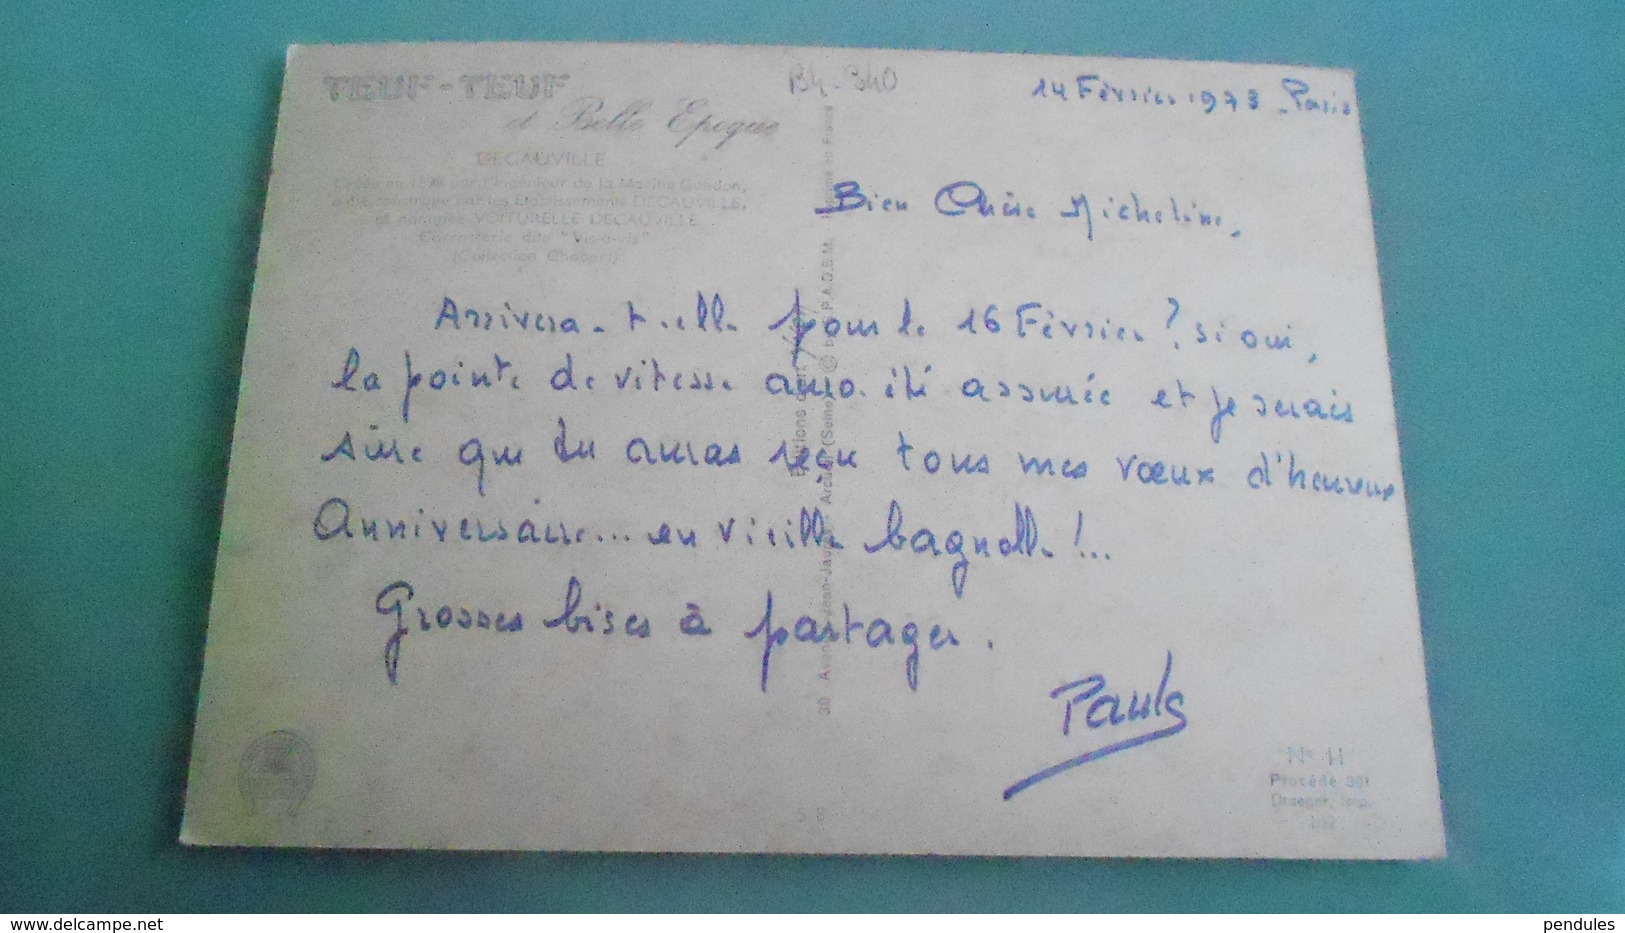 TEUF-TEUF
et Belle Epoque
B4-340
14 Février 1973 - Paris
DECAUVILLE
Créée en 1898 par l'Ingénieur de la Marine Guédon,
a été construite par les Etablissements DECAUVILLE,
et nommée VOITURELLE DECAUVILLE
Carrosserie dite "Vis-à-vis"
(Collection Chabert)
Bien Chère Micheline,
Arrivera-t-elle pour le 16 Février ? si oui,
la pointe de vitesse aura été assurée et je serais
sûre que tu auras reçu tous mes vœux d'heureux
Anniversaire... en vieille bagnolle !...
Grosses bises à partager.
Paule
30 Avenue Jean-Jaurès Arcueil (Seine) © by S.P.A.D.E.M. Imprimé en France
N° 11
Procédé 301
Draeger, Imp.
S B
pendules
www.delcampe.net